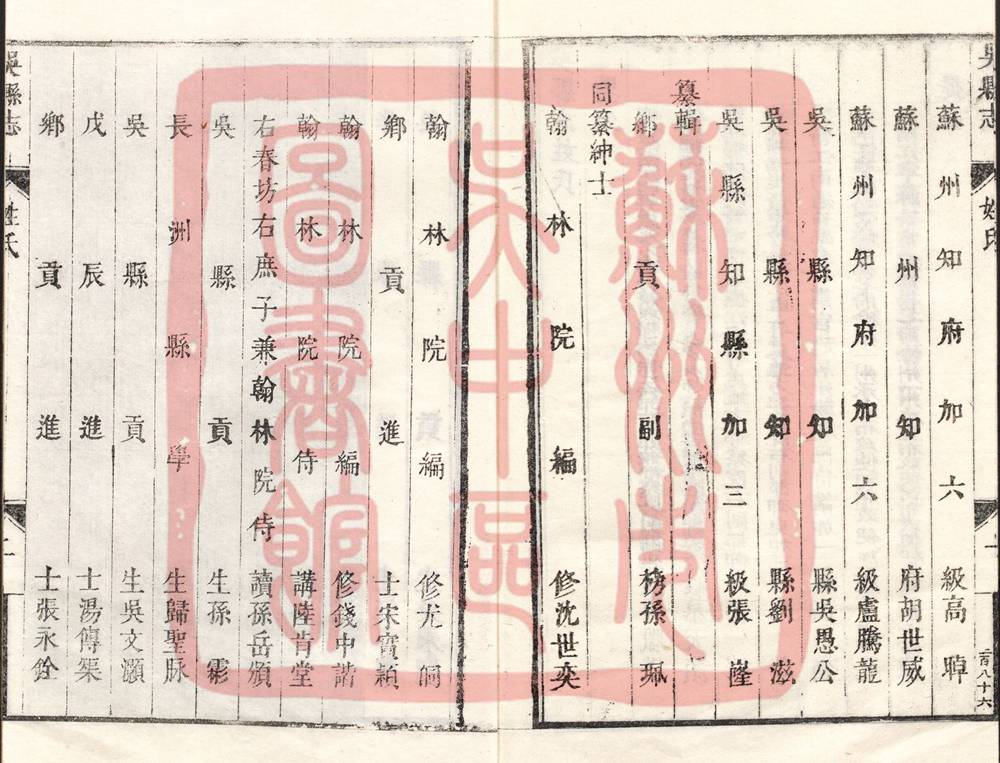 吳縣志
姓氏
一
蘇州知府加六級高晫
蘇州知府胡世威
蘇州知府加六級盧騰龍
吳縣知縣吳愚公
吳縣知縣劉滋
吳縣知縣加三級張
纂輯
鄉貢副榜孫珮
同纂紳士
翰林院編修沈世奕
翰林院編修尤侗
鄉貢進士宋實穎
翰林院編修錢中諧
翰林院侍講陸肯堂
右春坊右庶子兼翰林院侍讀孫岳頒
吳縣貢生孫
長洲縣學生歸聖脉
吳縣貢生吳文灝
戊辰進士湯傳榘
鄉貢進士張永銓
吳縣志
姓氏
二
蘇州市
吳中區
圖書館